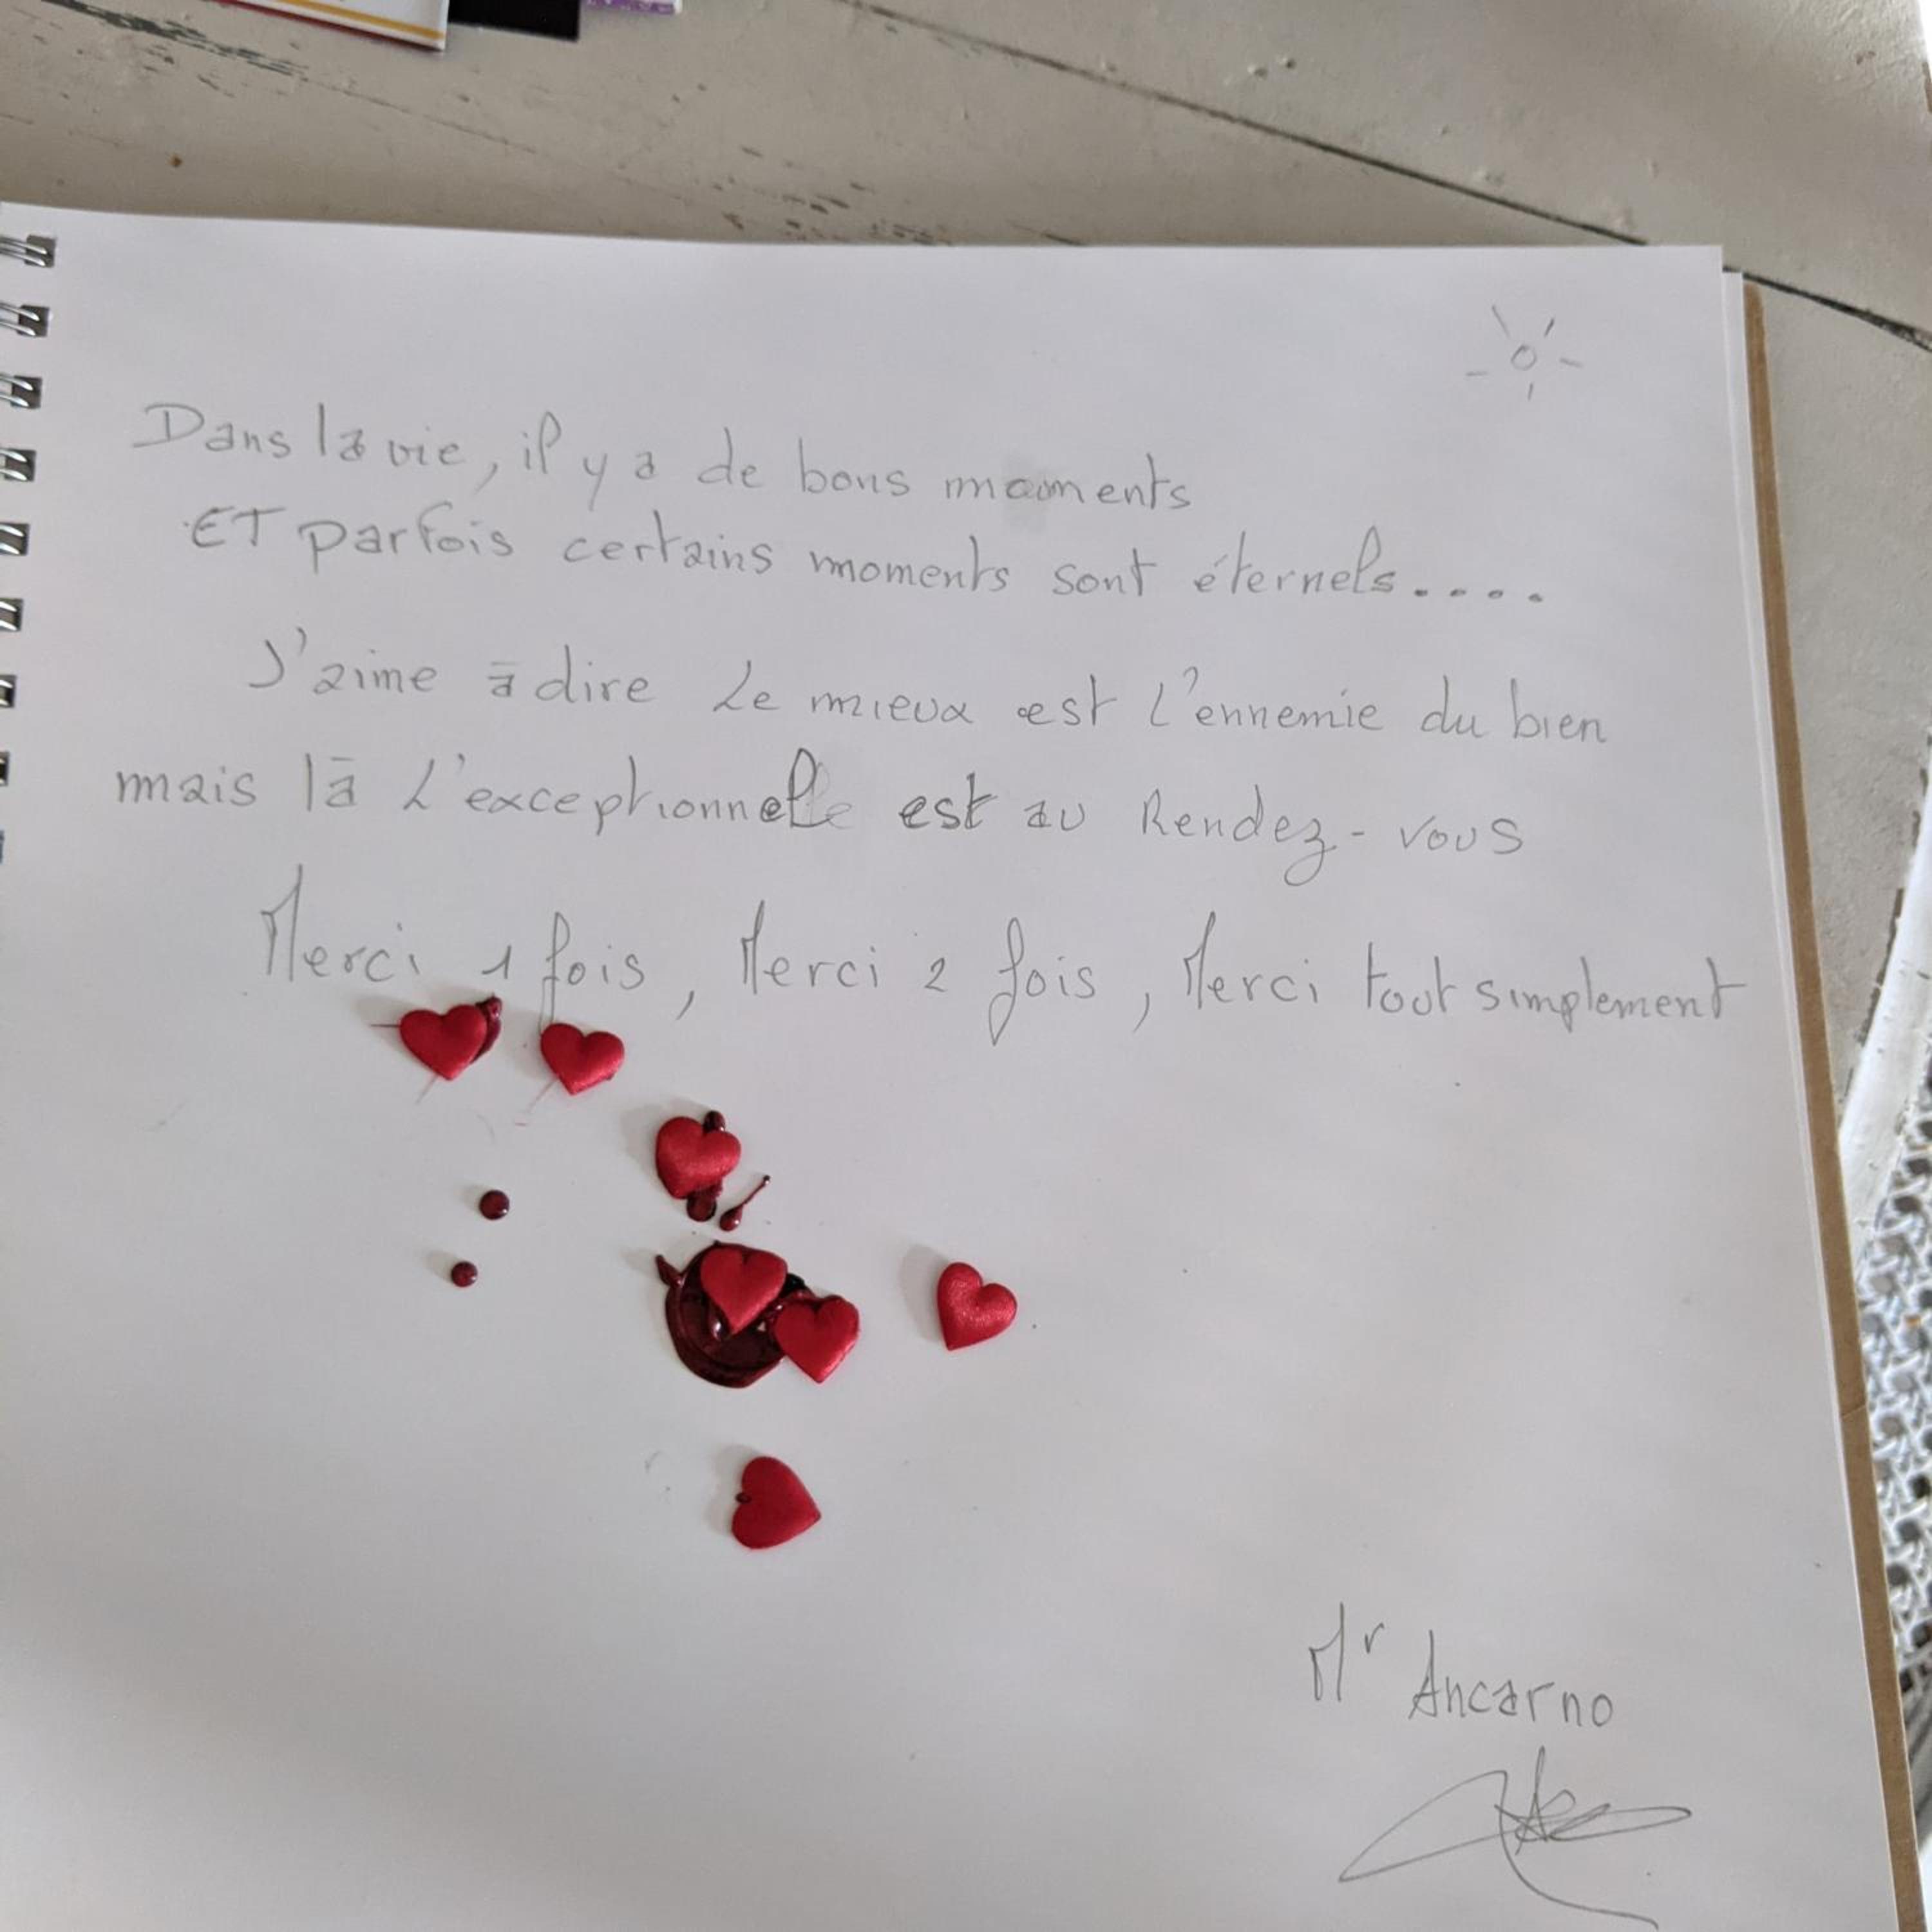 Dans la vie, il y a de bons moments
ET parfois certains moments sont éternels....
J'aime à dire Le mieux est l'ennemie du bien
mais là L'exceptionnelle est au Rendez-vous
Merci 1 fois, Merci 2 fois, Merci tout simplement
Mr Ancarno